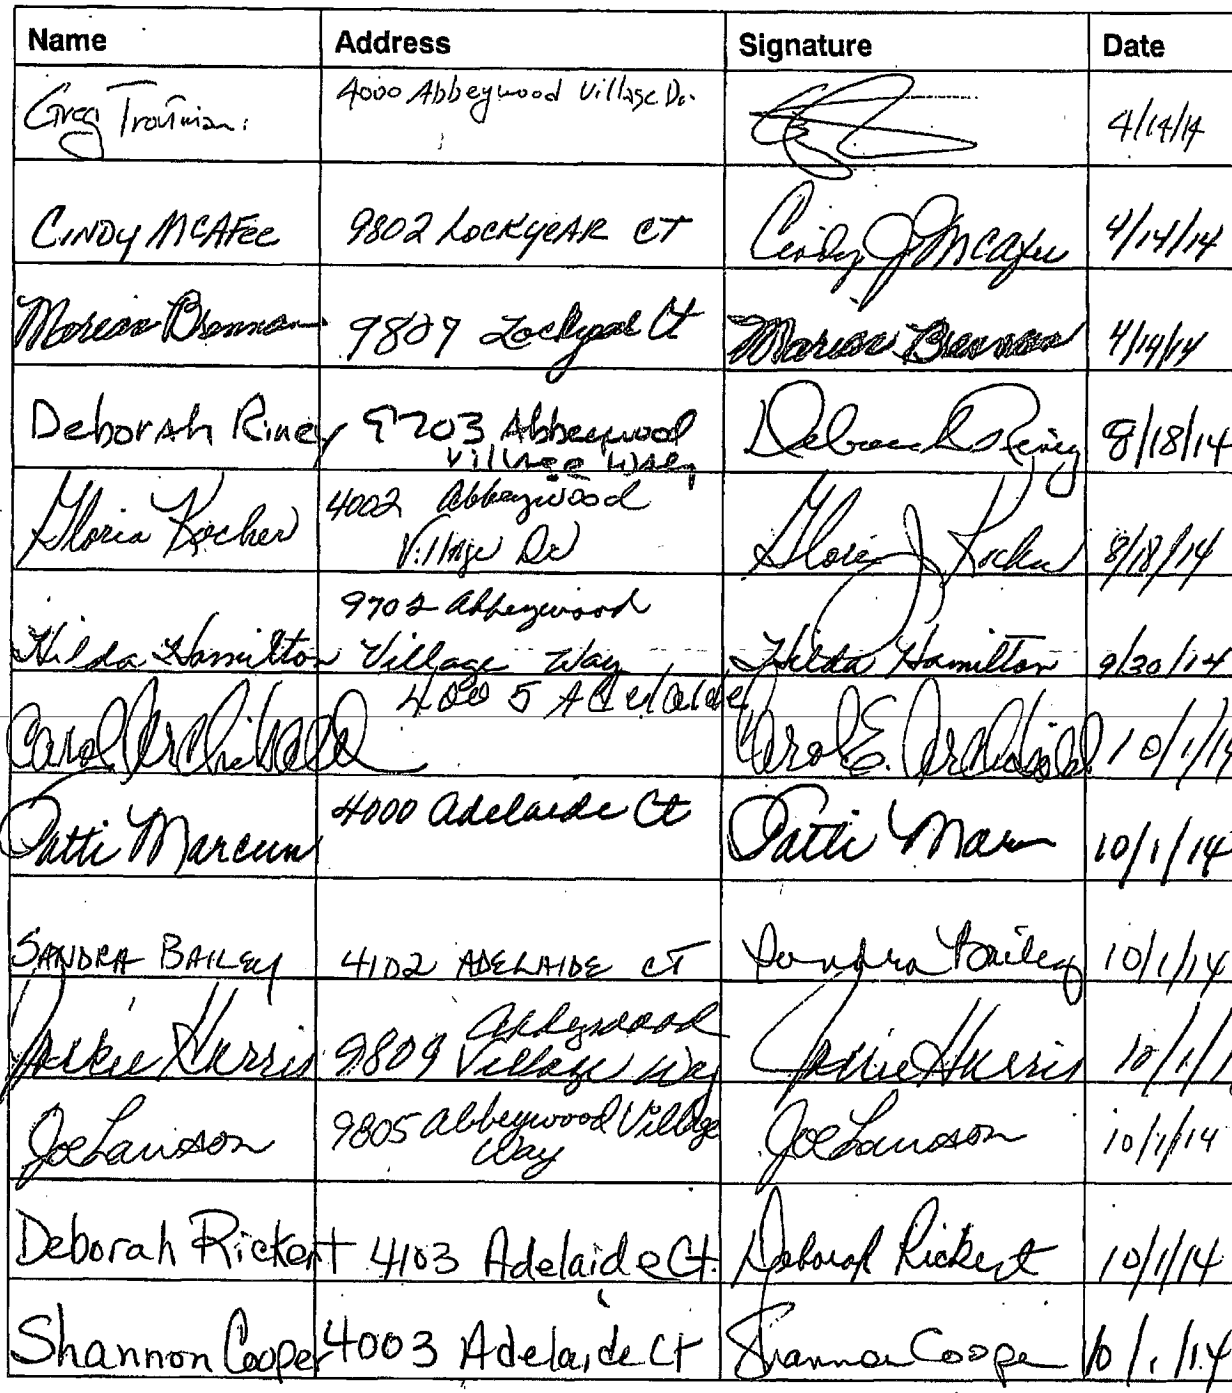 Name Address Signature Date
Greg Troutman 4000 Abbeywood Village Dr. 4/14/14
CINDY MCAFEE 9802 LOCKYEAR CT Cindy J McAfee 4/14/14
Marian Brennan 9809 Lockyear Ct Marian Brennan 4/14/14
Deborah Riney 9703 Abbeywood Village Way Deborah S Riney 8/18/14
Gloria Kocher 4002 Abbeywood Village Dr Gloria J Kocher 8/18/14
Hilda Hamilton 9702 Abbeywood Village Way Hilda Hamilton 9/30/14
Carol Archibald 4005 Adelaide Carol E. Archibald 10/1/14
Patti Marcum 4000 Adelaide Ct Patti Mar 10/1/14
SANDRA BAILEY 4102 ADELAIDE CT Sandra Bailey 10/1/14
Jackie Harris 9809 Abbeywood Village Way Jackie Harris 10/1/1
Joe Lawson 9805 Abbeywood Village Way Joe Lawson 10/1/14
Deborah Rickert 4103 Adelaide Ct. Deborah Rickert 10/1/14
Shannon Cooper 4003 Adelaide Ct Shannon Cooper 10/1/14